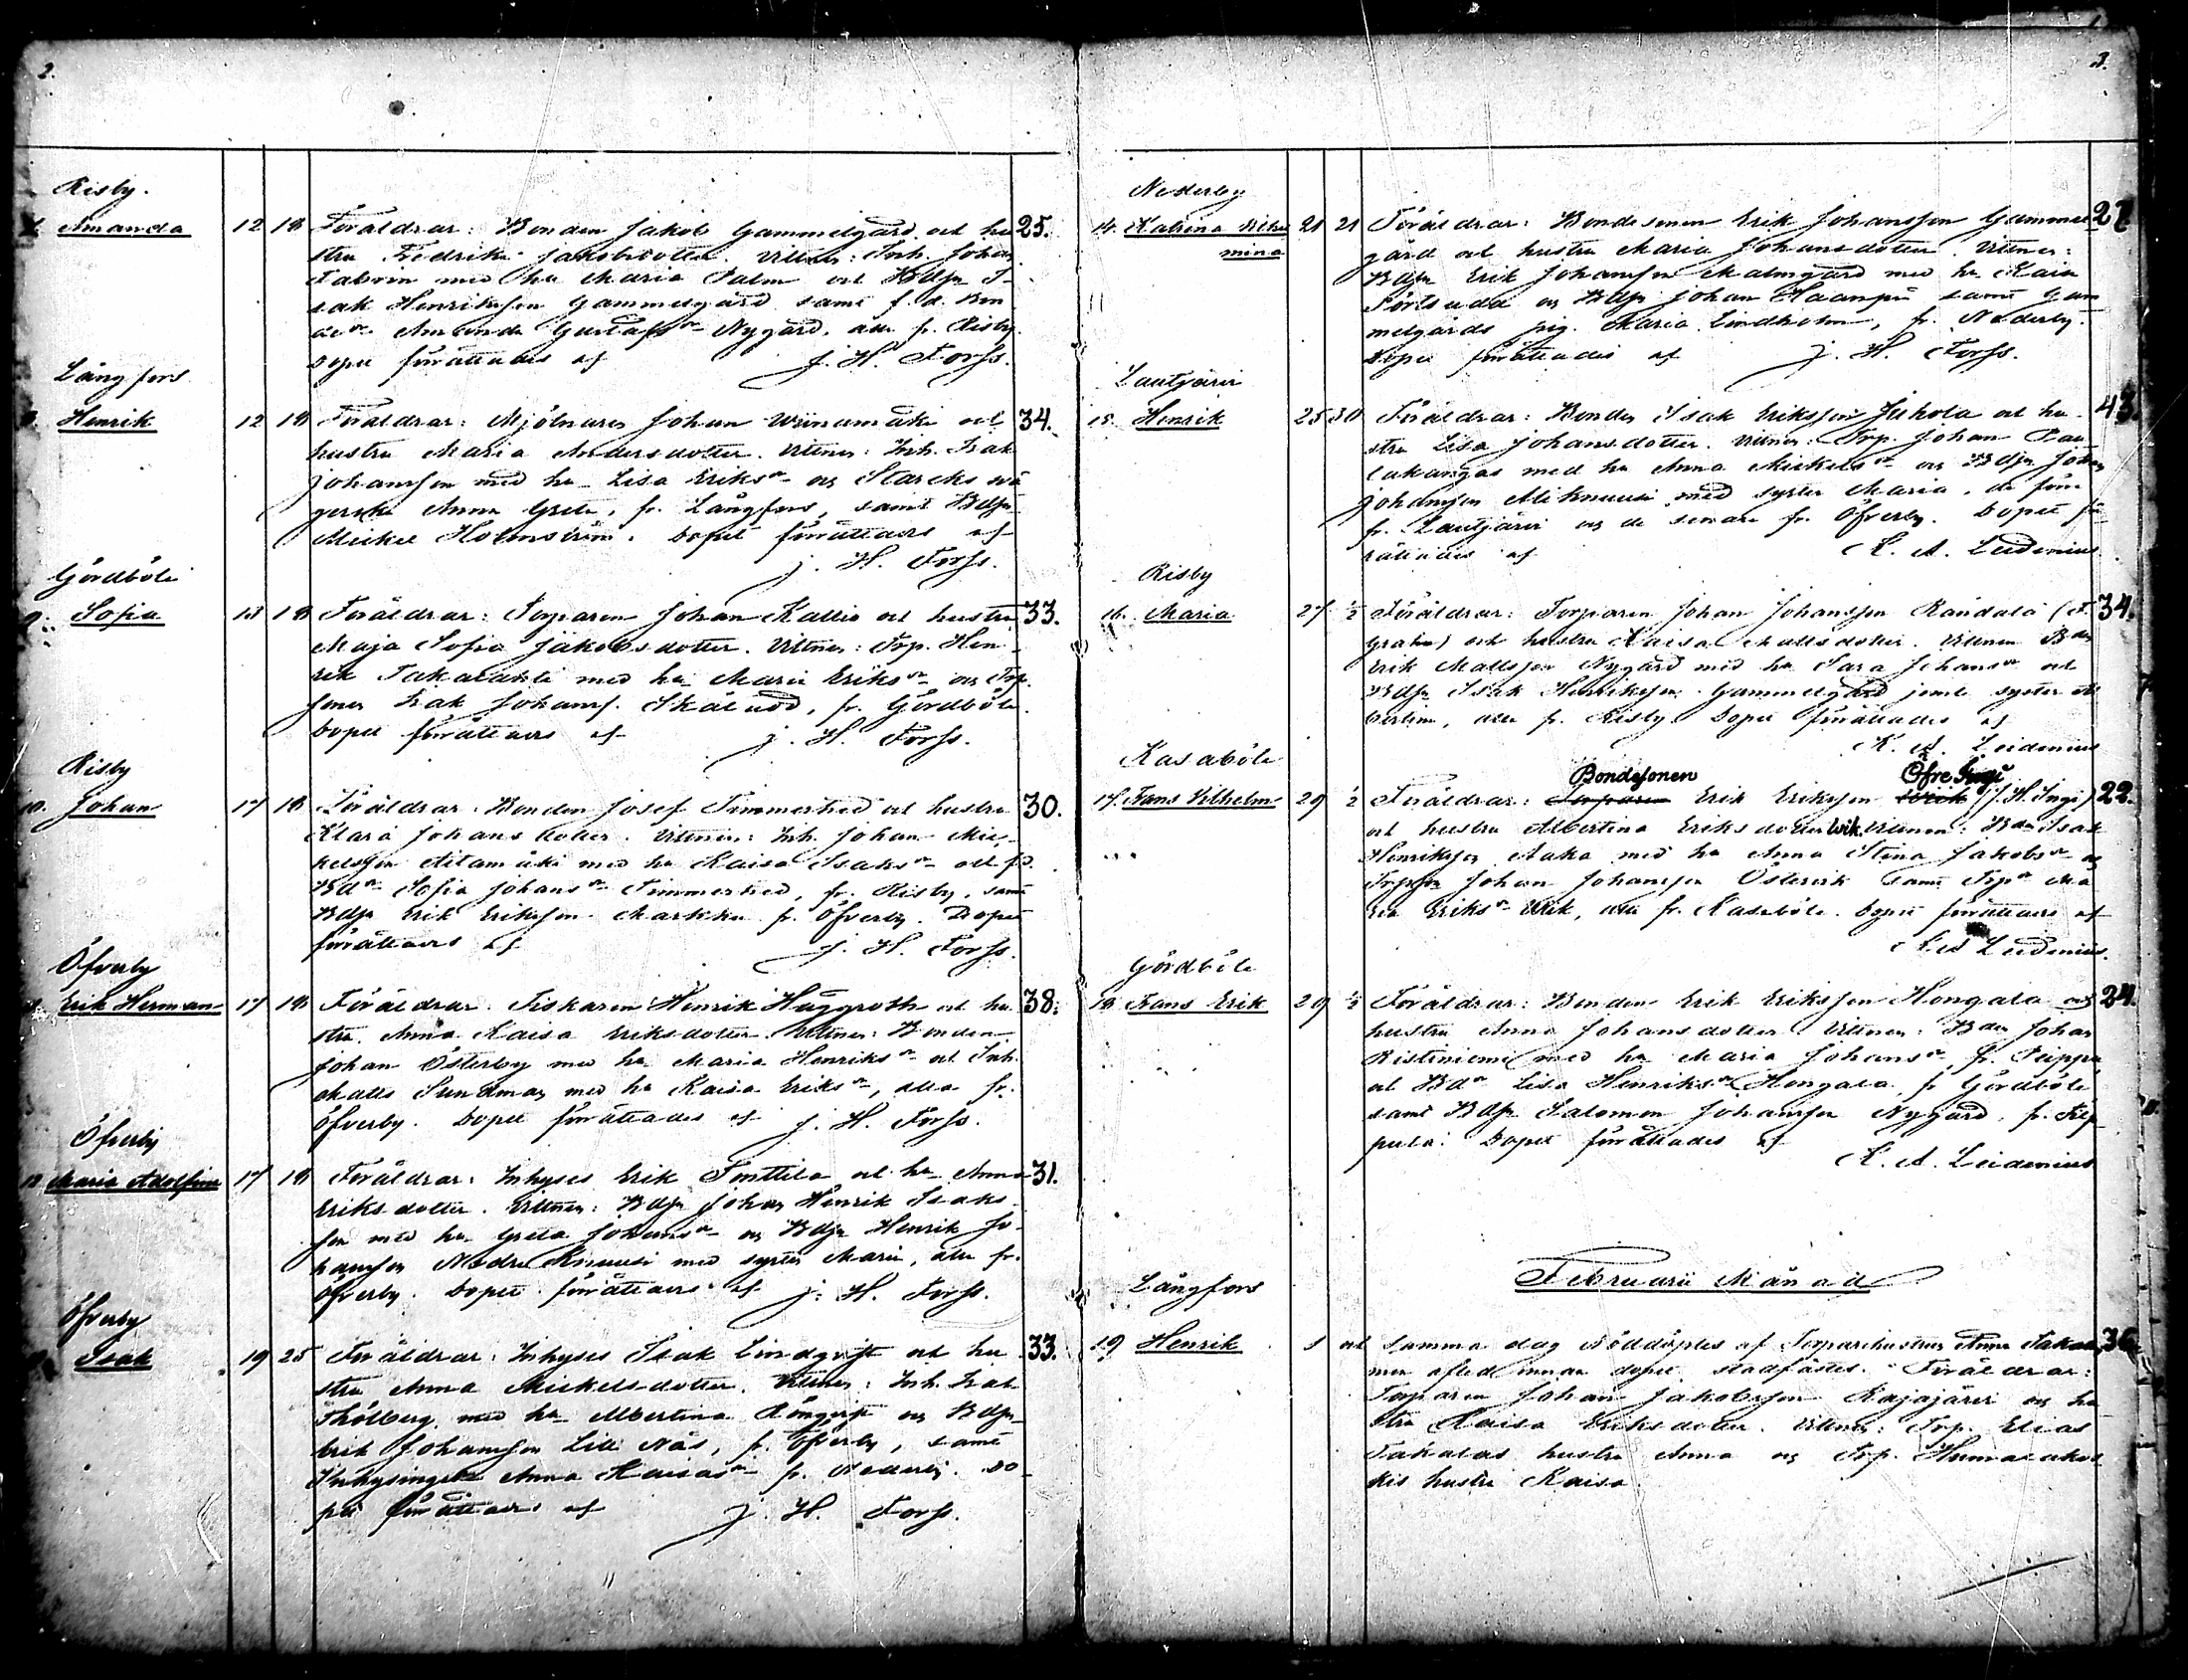 2.
Risby.
Amanda 12 18 Föräldrar: Bonden Jakob Gammelgård och hu 25.
stru Fredrika Jakobsdotter. Vittnen: Inh. Johan
med hu Maria Palm och Bdsn I-
sak Henriksson Gammelgård samt f. d. Bon
de Amanda Gustafs Nygård, alla fr. Risby.
Dopet förättades af J. H. Forss.
Långfors
Henrik 12 18 Föräldrar: Mjölnaren Johan och 34.
hustru Maria Andersdotter. Vittnen: Inh. Isak
Johansson med hu Lisa Eriks och Starcks svä
gerska Anna Greta, fr. Långfors, samt Bdsn
Mickel Holmström. Dopet förättades af
J. H. Forss.
Gördböle
9. Sofia 13 18 Föräldrar: Torparen Johan Kallio och hustru 33.
Maja Sofia Jakobsdotter. Vittnen: Trp. Hen-
rik med hu Maria Eriks och Trp.
sonen Isak Johans. Skäludd, fr. Gördböle.
Dopet förättades af J. H. Forss.
Risby
10. Johan 17 18 Föräldrar: Bonden Josef Timmerhed och hustru 30.
Klara Johansdotter. Vittnen: Inh. Johan Mic-
kelsson med hu Kaisa Isaks och
Bd Sofia Johans Timmerhed, fr. Risby, samt
Bdsn Erik Eriksson Markku fr. Öfverby. Dopet
förättades af J. H. Forss.
Öfverby
Erik Herman 17 18 Föräldrar: Fiskaren Henrik Häggroth och hu 38.
stru Anna Kaisa Eriksdotter. Vittnen: Bonden
Johan Österby med hu Maria Henriks och Inh.
Matts Sundman med hu Kaisa Eriks, alla fr.
Öfverby. Dopet förättades af J. H. Forss.
Öfverby
Maria Adolfina 17 18 Föräldrar: Inhyses Erik Tonttila och hu Anna 31.
Eriksdotter. Vittnen: Bdsn Johan Henrik Isaks-
son med hu Greta Johans och Bdsn Henrik Jo-
hansson Nedre Knuusi med syster Maria, alla fr.
Öfverby. Dopet förättades af J. H. Forss.
Öfverby
Isak 19 25 Föräldrar: Inhyses Isak Lindqvist och hu 33.
stru Anna Mickelsdotter. Vittnen: Inh. Isak
med hu Albertina och Bdsn
Erik Johansson Lill Näs, fr. Öfverby, samt
Inhysingen Anna fr. Nederby. Do-
pet förättades af J. H. Forss.
3.
Nederby
14. Katrina Vilhel 21 21 Föräldrar: Bondesonen Erik Johansson Gammel 27.
mina gård och hustru Maria Johansdotter. Vittnen:
Bdsn Erik Johansson Malmgård med hu Kaisa
och Bdsn Johan Haanpää samt Gam
melgårds pig. Maria Lindholm, fr. Nederby.
Dopet förättades af J. H. Forss.
Lautjärvi
15. Henrik 25 30 Föräldrar: Bonden Isak Eriksson Juhola och hu- 43.
stru Lisa Johansdotter. Vittnen: Trp. Johan Rau
takangas med hu Anna Mickels och Bdsn Johan
Johansson Aliknuusi med syster Maria, de förre
fr. Lautjärvi och de senare fr. Öfverby. Dopet för
rättades af K. A. Leidenius
Risby
16. Maria 27 ½ Föräldrar: Torparen Johan Johansson Randala 34.
och hustru Kaisa Mattsdotter. Vittnen Bden
Erik Mattsson Nygård med hu Sara Johans och
Bdsn Isak Henriksson Gammelgård jemte syster Al
bertina, alla fr. Risby. Dopet förättades af
K. A. Leidenius
Kasaböle
Bondesonen Öfre Ingi
17. Frans Vilhelm 29 ½ Föräldrar: Torparen Erik Eriksson Wik (J. H. Ingi) 22.
och hustru Albertina Eriksdotter Wik. Vittnen: Bden Isak
Henriksson med hu Anna Stina Jakobs och
Trpson Johan Johansson Östervik samt Trp Ma
ria Eriks Wik, alla fr. Kasaböle. Dopet förättades af
K. A. Leidenius.
Gördböle
18. Frans Erik 29 ½ Föräldrar: Bonden Erik Eriksson Hongala och 24.
hustru Anna Johansdotter. Vittnen: Bden Johan
Ristiniemi med hu Maria Johans, fr.
och Bd Lisa Henriks Hongala fr Gördböle
samt Bdsn Salomon Johansson Nygård, fr.
Dopet förättades af
K. A. Leidenius
Februarii Månad
Långfors
19 Henrik 1 och samma dag nöddöptes af Torparehustrun Anna Takala, 36.
men afled innan dopet stadfästes. Föräldrar:
Torparen Johan Jakobsson Kajajärvi och hu
stru Kaisa Eriksdotter. Vittnen: Trp. Elias
Takalas hustru Anna och Trp.
kis hustru Kaisa.